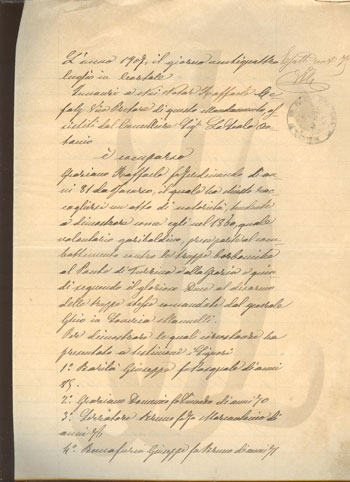 L'anno 1907, il giorno ventiquattro
luglio in Cortale
Innanzi a Noi Notar Raffaele Ce
faly Vice Pretore di questo Mandamento, as
sistiti dal Cancelliere Sig.
tonio
è comparso
Graziano Raffaele fu Ferdinando di an
ni 81 da Jacurso, il quale ha chiesto rac
cogliersi un atto di notorietà tendente
a dimostrare come egli nel 1860, quale
volontario garibaldino, prese parte al com
battimento contro le truppe borboniche
al Ponte di e quin
di seguendo il glorioso Duce al disarmo
delle truppe stesse comandate dal generale
Ghio in Soveria Mannelli.
Per dimostrare le quali circostanze ha
presentato a testimoni i Signori
1.° Barilà Giuseppe fu Pasquale di anni
75.
2.° Graziano Domenico fu di anni 70
3.° Bruno fu Marcantonio di
anni 76
4.° Giuseppe fu Bruno di anni 71